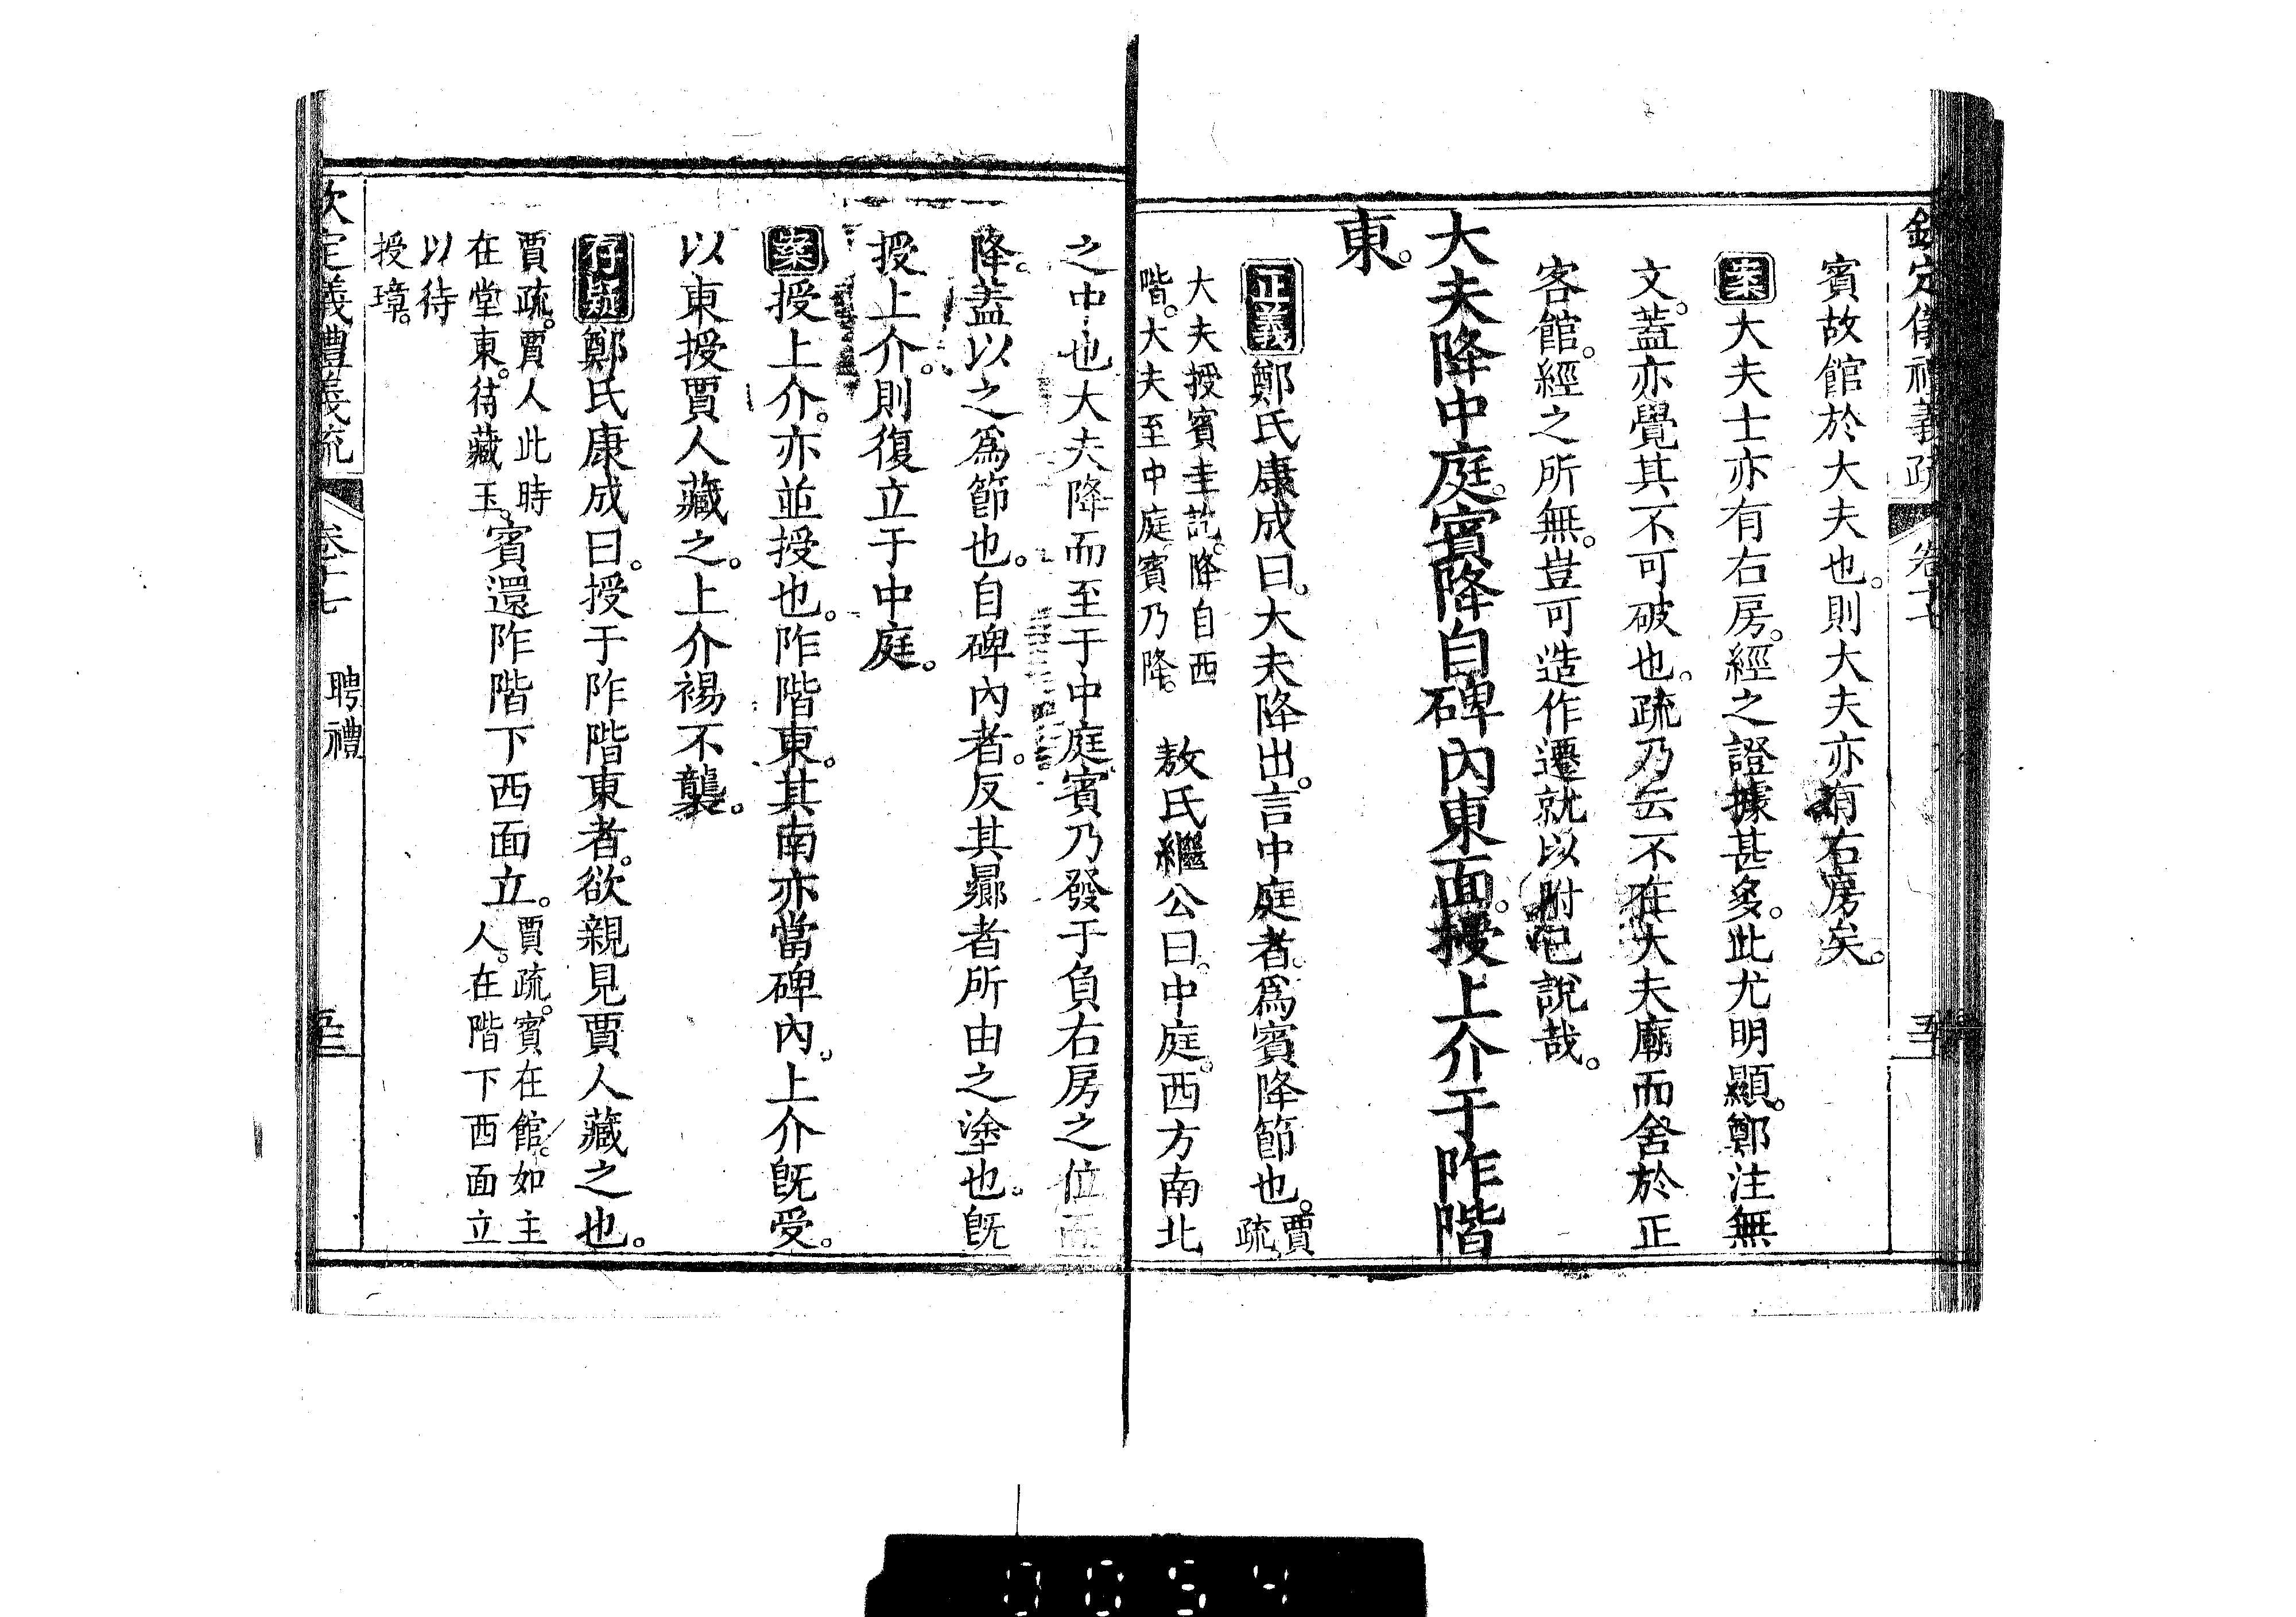 欽定儀禮義疏 卷十七
賓故館於大夫也。則大夫亦有右房矣。
案大夫士亦有右房。經之證據甚多。此尤明顯。鄭注無
文。蓋亦覺其不可破也。疏乃云不在大夫廟而舍於正
客館。經之所無。豈可造作遷就以附已說哉。
大夫降中庭。賓降自碑內東面。授上介于阼階
東。
正義鄭氏康成曰。大夫降出。言中庭者。為賓降節也。賈疏
大夫授賓圭訖。降自西
階。大夫至中庭。賓乃降。 敖氏繼公曰。中庭。西方南北
之中也大夫降而至于中庭賓乃發于負右房之位而
降。蓋以之為節也。自碑內者。反其曏者所由之塗也。旣
授上介。則復立于中庭。
案授上介。亦並授也。阼階東。其南亦當碑內。上介旣受。
以東授賈人藏之。上介裼不襲。
存疑鄭氏康成曰。授于阼階東者。欲親見賈人藏之也。
賈疏。賈人此時
在堂東。待藏玉。賓還阼階下西面立。賈疏。賓在館。如主
人。在階下西面立
以待
授璋。
欽定義禮義疏 卷十七 聘禮